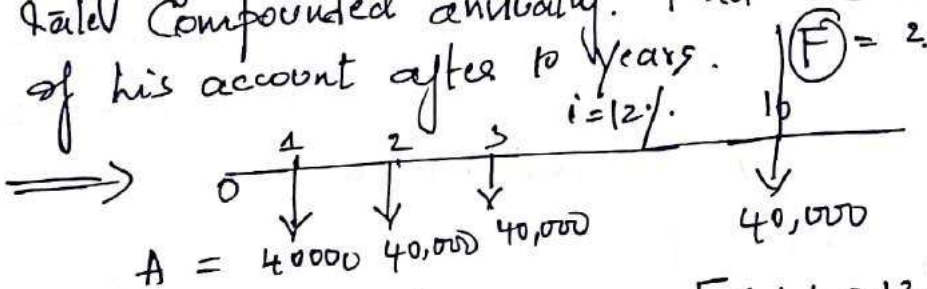 Compounded annually.
of his account after 10 years. F = 2
i=12%.
1 2 3 10
0
A = 40000 40,000 40,000 40,000